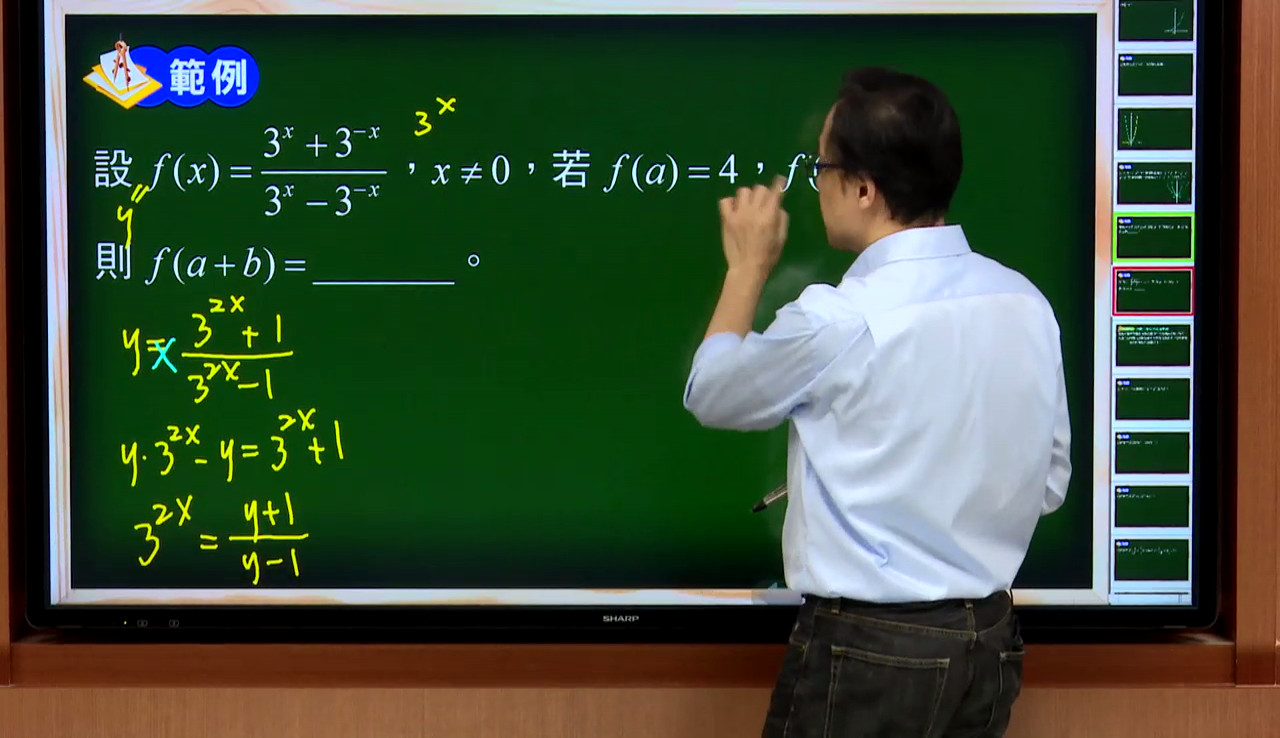 範例
3^x
設 f(x) = \frac{3^x + 3^{-x}}{3^x - 3^{-x}}，x ≠ 0，若 f(a) = 4，f(
y
則 f(a+b) = ______。
y = x \frac{3^{2x} + 1}{3^{2x} - 1}
y·3^{2x} - y = 3^{2x} + 1
3^{2x} = \frac{y+1}{y-1}
SHARP